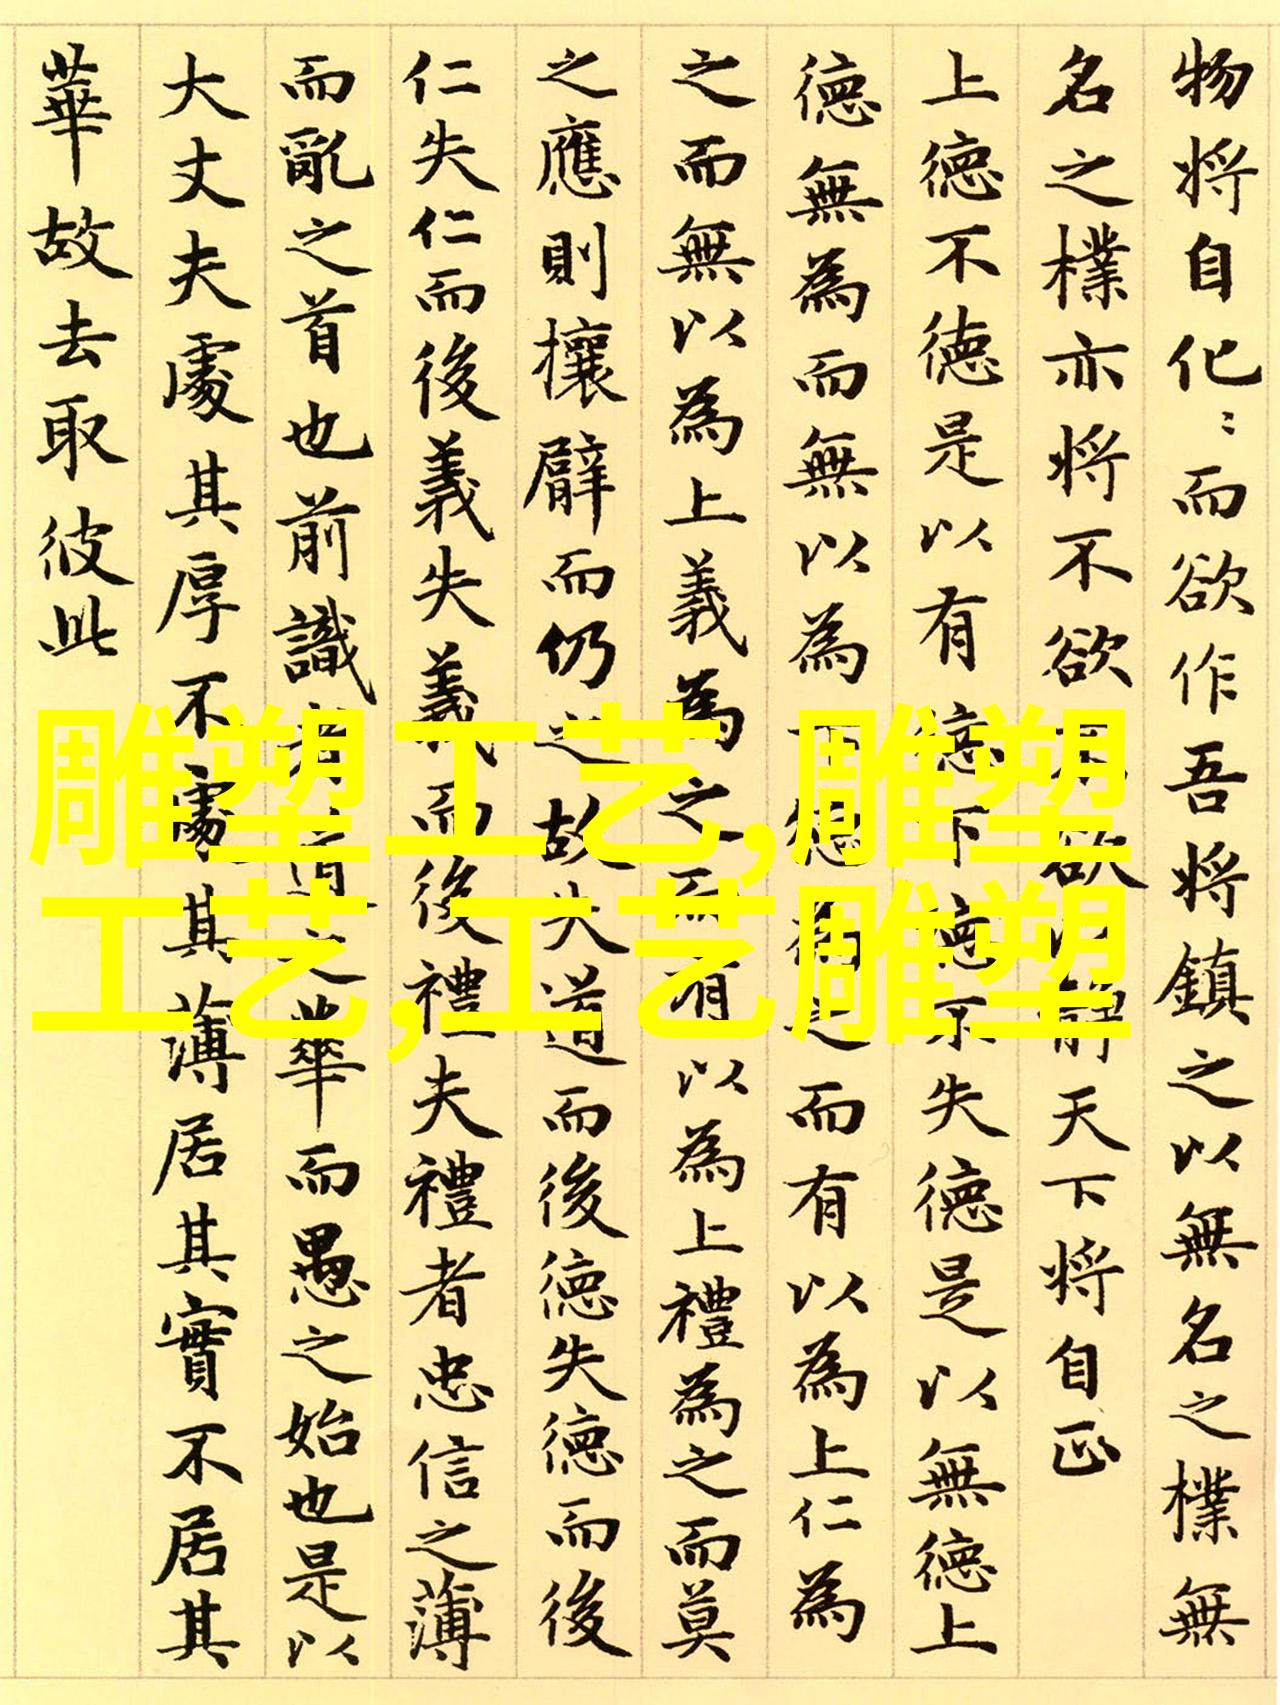 物将自化〻而欲作吾将鎮之以無名之樸無
名之樸亦将不欲不欲以静天下将自正
上德不德是以有德下德不失德是以無德上
德無為而無以為下德為之而有以為上仁為
之而無以為上義為之而有以為上禮為之而莫
之應則攘臂而仍之故失道而後德失德而後
仁失仁而後義失義而後禮夫禮者忠信之薄
而亂之首也前識者道之華而愚之始也是以
大丈夫處其厚不處其薄居其實不居其
華故去取彼此
雕塑工艺,雕塑
工艺,工艺雕塑